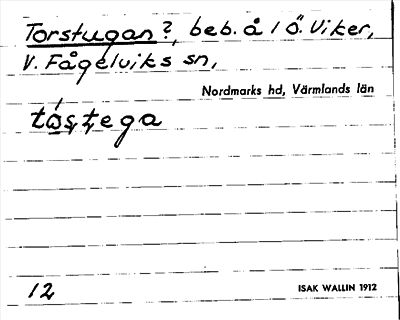 Torstugan?, beb. å 1 Ö. Viker,
V. Fågelviks sn,
Nordmarks hd, Värmlands län
tåşţega
12
ISAK WALLIN 1912